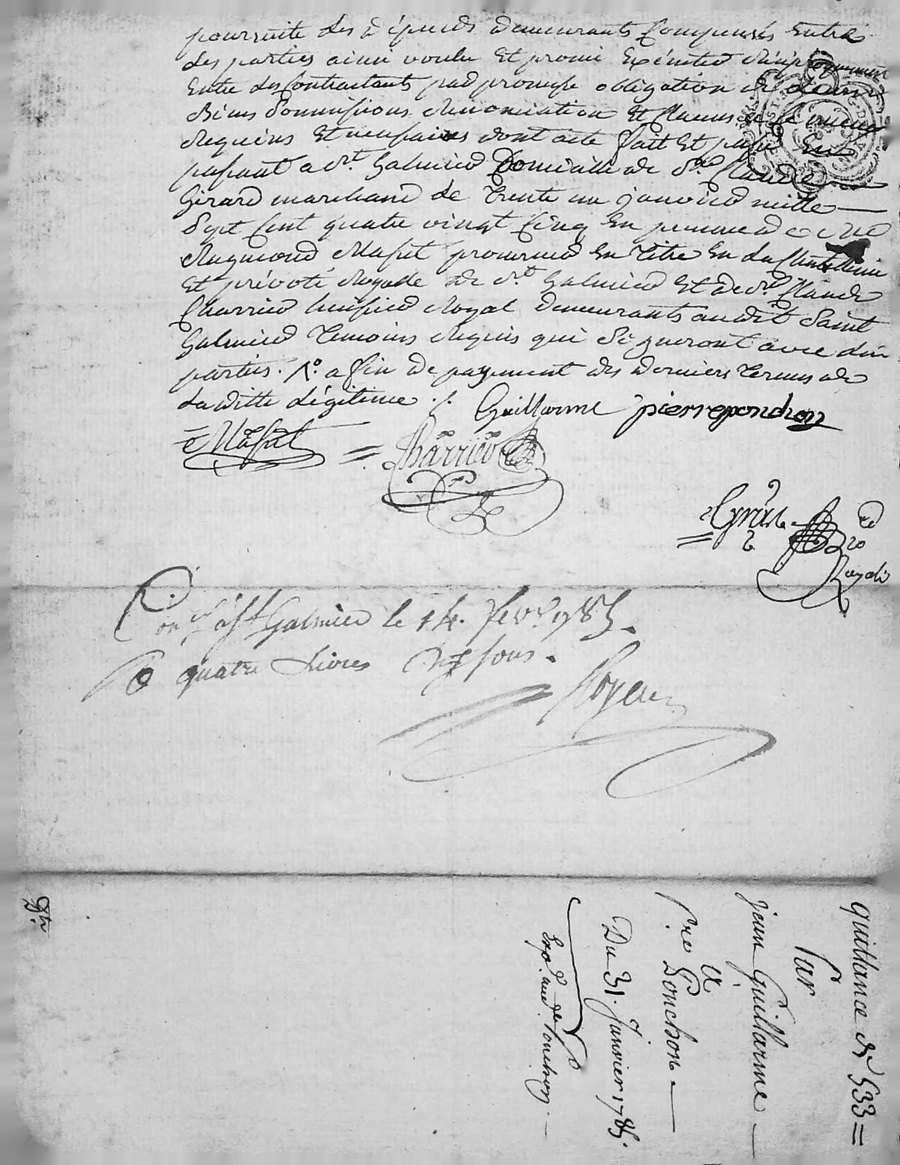 poursuitte des dépends demeurants Compensés Entre
des parties ainsi voulu Et promis Exécuter
Entre des Contractants par promesse obligation de Leurs
Biens soumissions Renonciation Et Clauses
Requises Et necessaires dont acte fait Et passé
a St. Galmier Domicille de Sr. Claude
Girard marchand de trente un janvier mille
Sept Cent quatre vingt Cinq En presence de Me
Raymond Massit procureur En titre En La Chatellenie
Et prévoté Royalle de St Galmier Et de Sr. Claude
Charrier huissier Royal demeurants audit Saint
Galmier temoins Requis qui Signeront avec
parties. a fin de payement des derniers termes de
La ditte Légitime ./. Guillarme pierreponchon
Massit = Charrier
Royale
Con.lé à St. Galmier le 14. fevr. 1785.
R quatre Livres sous.
quittance de 533 =
Par
jean Guillarme
a
Pre Ponchon
Du 31. Janvier 1785.
Exp. aud. Ponchon